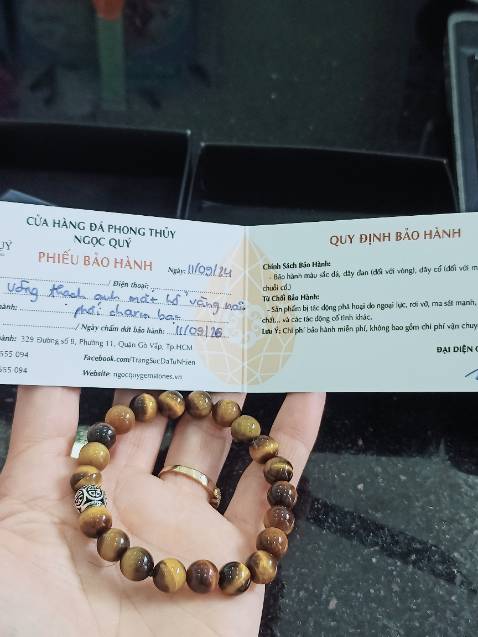 CỬA HÀNG ĐÁ PHONG THỦY
NGỌC QUÝ
PHIẾU BẢO HÀNH
Ngày: 11/09/24
/ Điện thoại:
Vòng thạch anh mắt hổ vàng nâu
phối charm bạc
/ Ngày chấm dứt bảo hành: 11/09/26
hành: 329 Đường số 8, Phường 11, Quận Gò Vấp, Tp.HCM
655 094 Facebook.com/TrangSucDaTuNhien
555 094 Website: ngocquygemstones.vn
QUY ĐỊNH BẢO HÀNH
Chính Sách Bảo Hành:
- Bảo hành màu sắc đá, dây đan (đối với vòng), dây cổ (đối với
chuỗi cổ)
Từ Chối Bảo Hành:
- Sản phẩm bị tác động phá hoại do ngoại lực, rơi vỡ, ma sát mạnh,
chất... và các tác động cố tình khác.
Lưu Ý: Chi phí bảo hành miễn phí, không bao gồm chi phí vận chuy
ĐẠI DIỆN